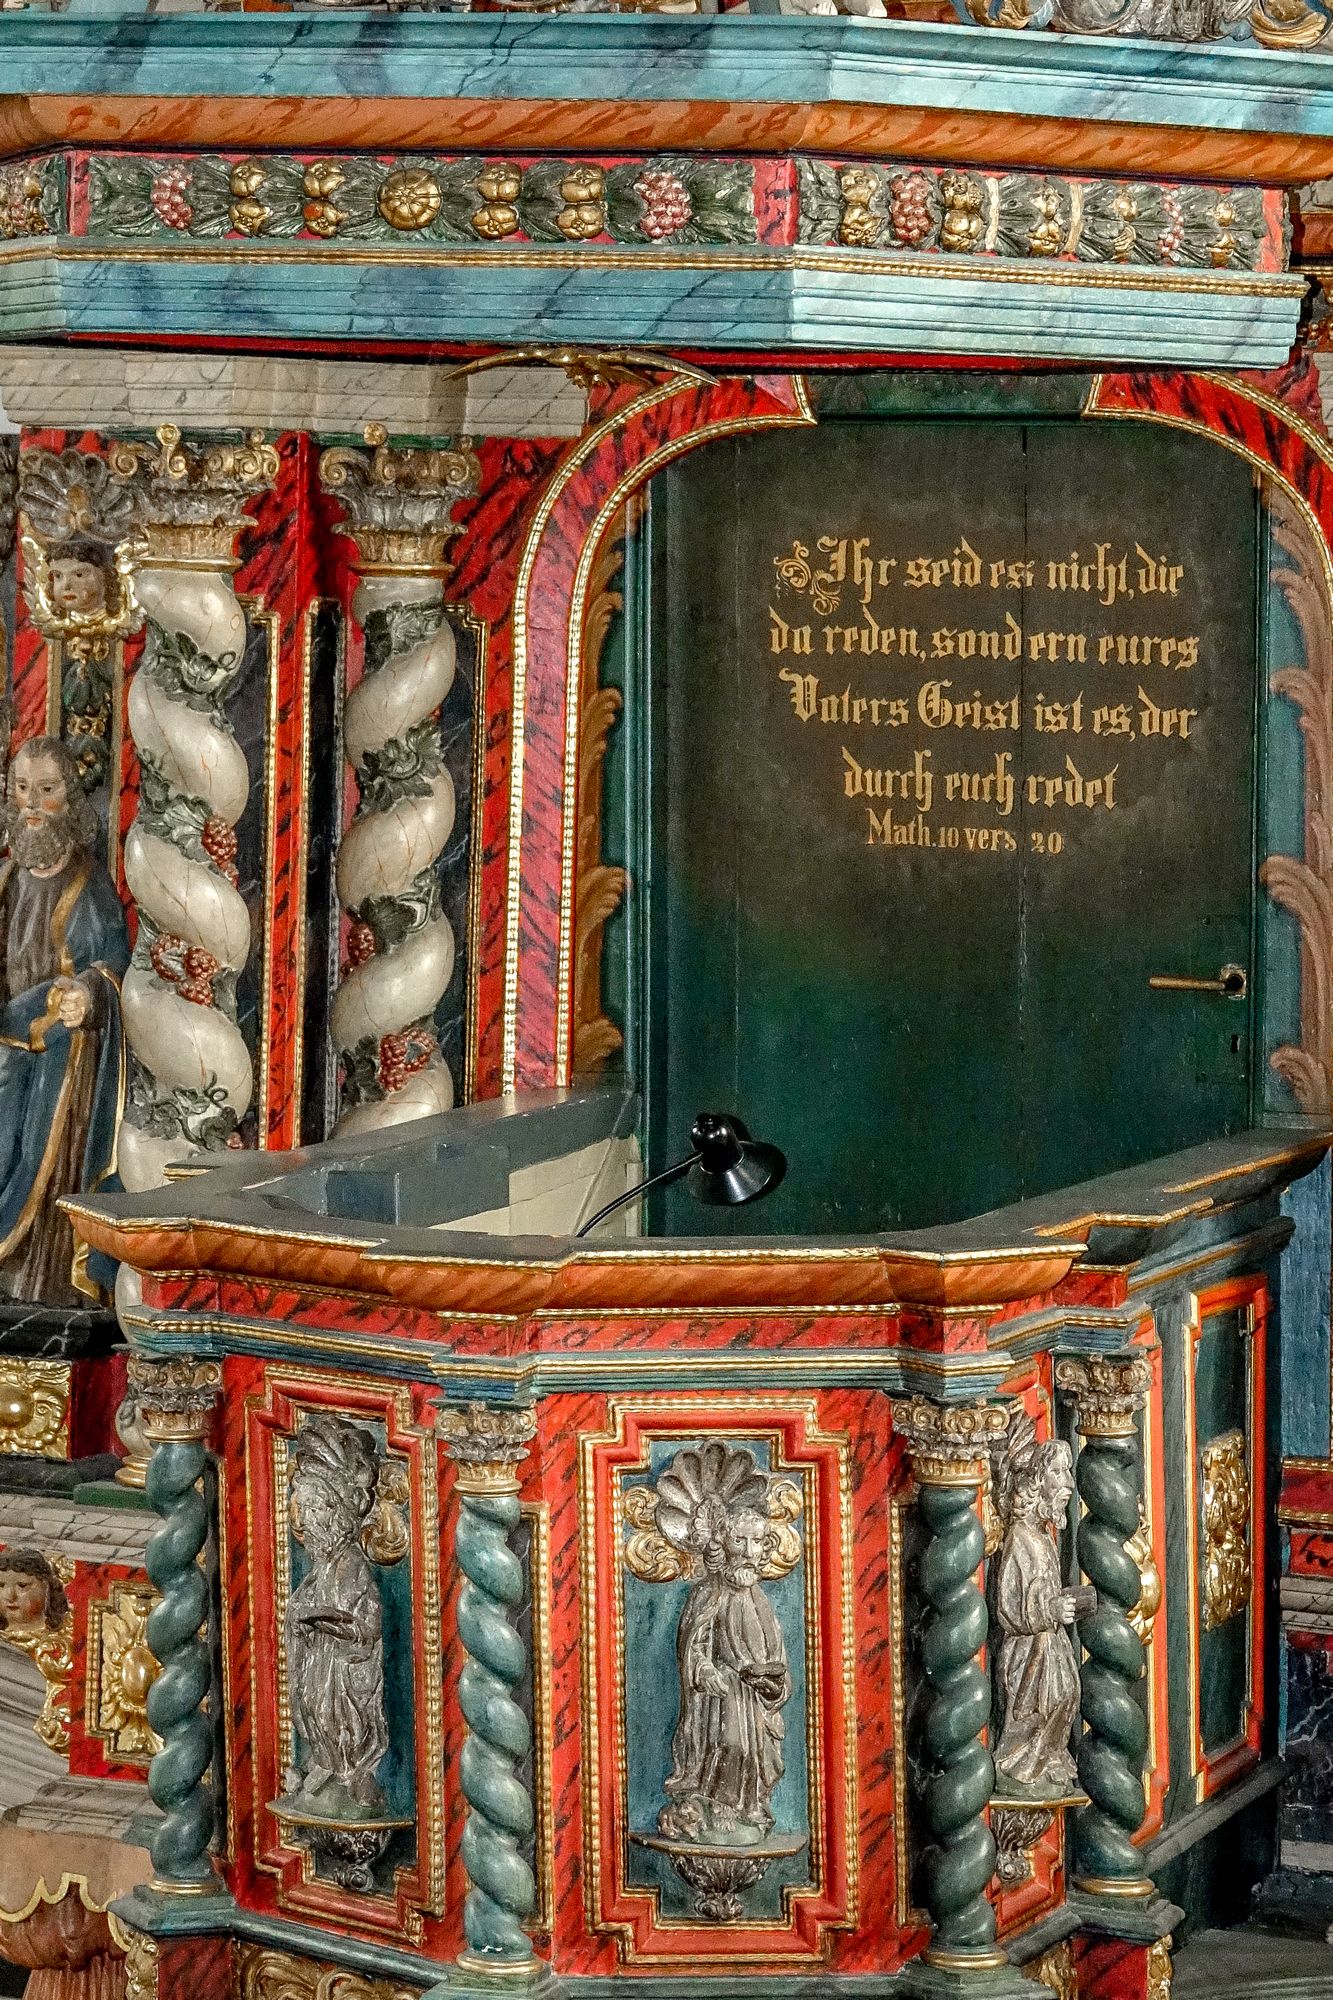 Ihr seid es nicht, die
da reden, sondern eures
Vaters Geist ist es, der
durch euch redet
Math. 10 vers 20